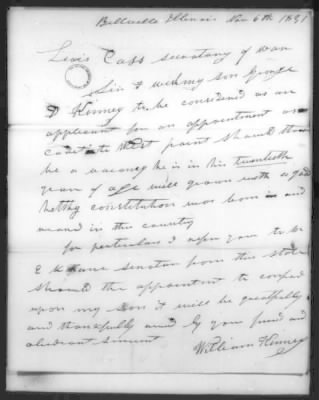 Bellville Illinois Nov 6th 1831
Lewis Cass secretary of war
Sir I wish my son George
D Kinney to be considered as an
applicant for an appointment as
cadet at West point should there
be a vacancy he is in his twentieth
year of age well grown with a good
helthy constitution was born in and
raisd in this country
for particulars I refer you to Mr
E K Kane senator from this state
should the appointment be confered
upon my son it will be greatfully
and thankfully recd by your friend and
obediant servant
William Kinney